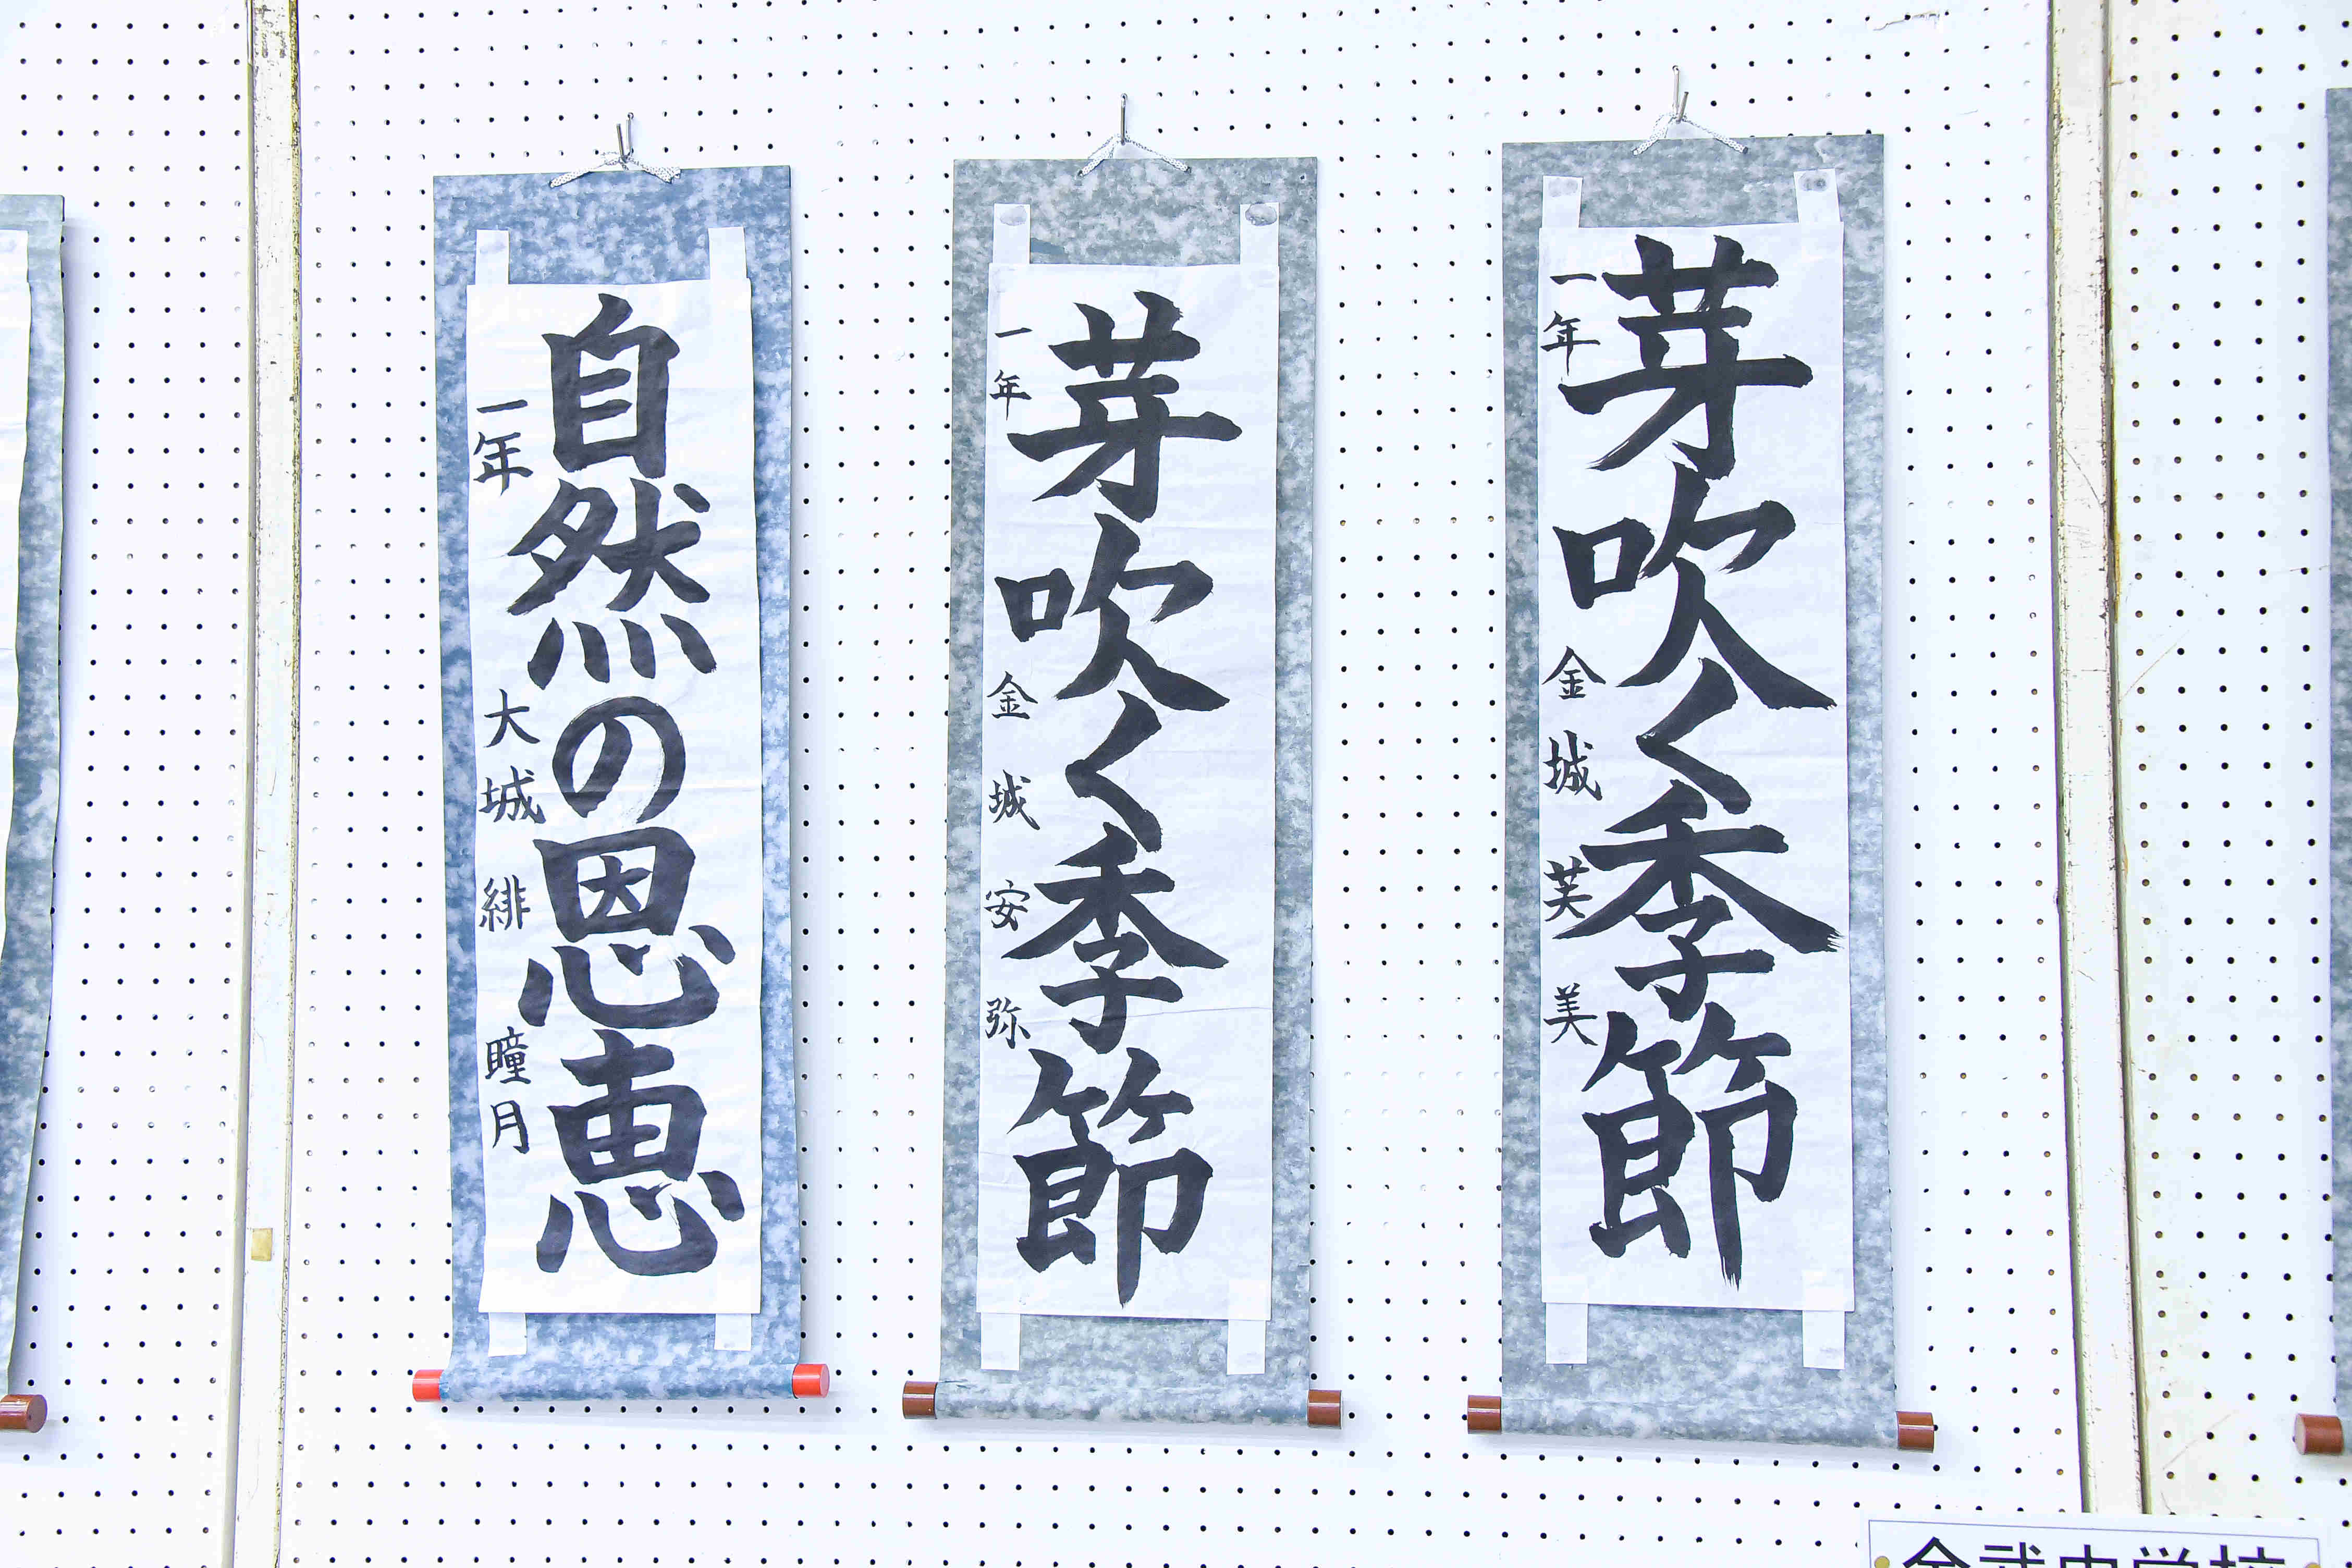 芽吹く季節
一年 金城 芙美
芽吹く季節
一年 金城 安弥
自然の恩恵
一年 大城 緋瞳月
金武中学校